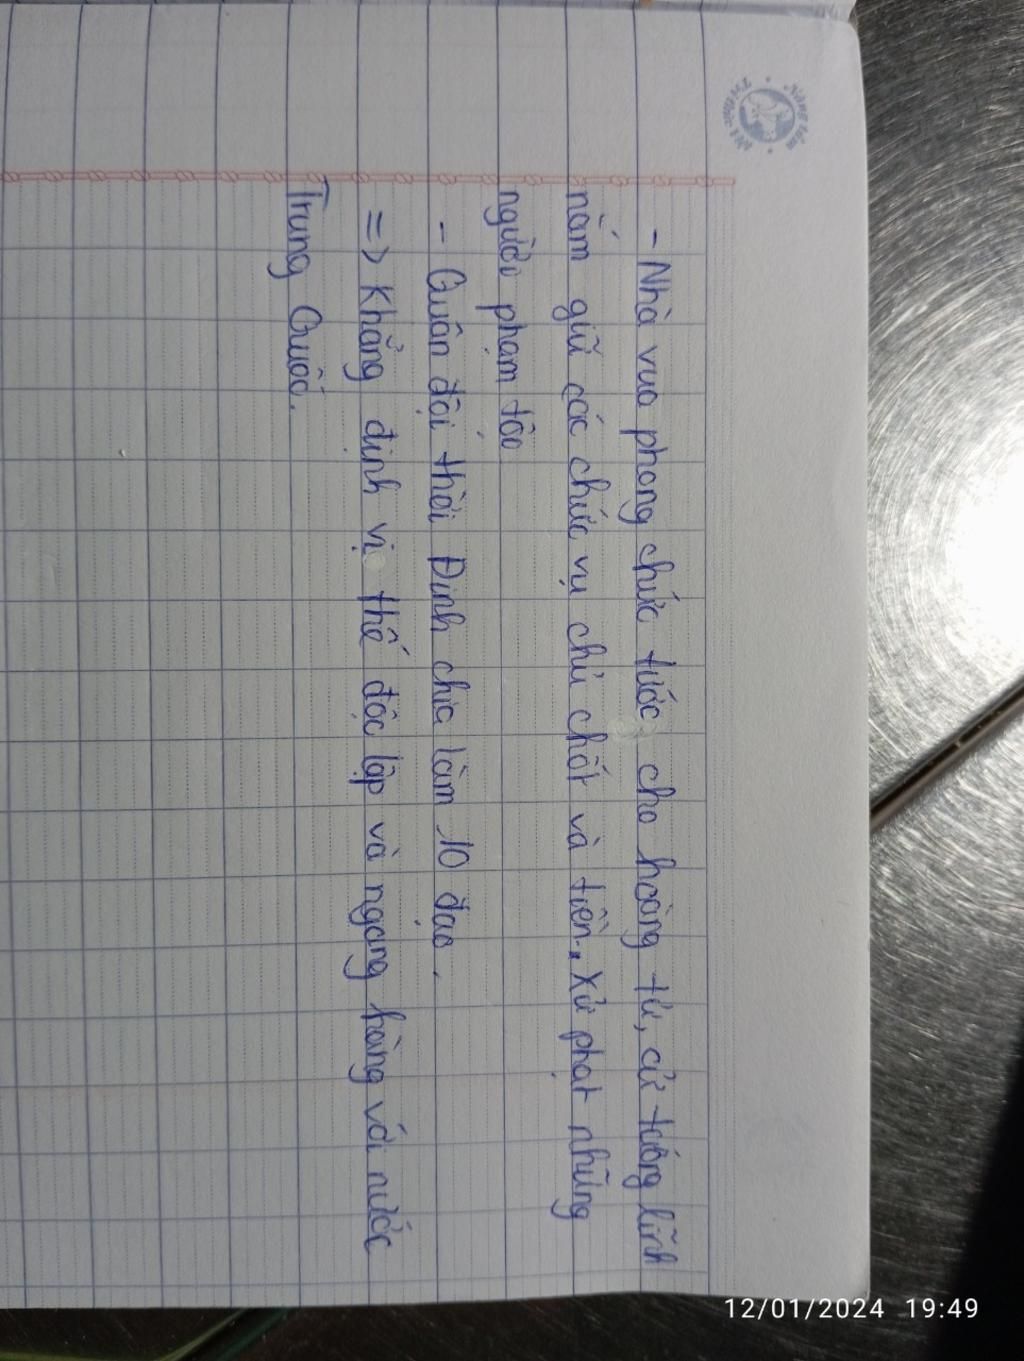 - Nhà vua phong chức tước cho hoàng tử, cử tướng lĩnh
nắm giữ các chức vụ chủ chốt và tiền. Xử phạt những
người phạm tội
- Quân đội thời Đinh chia làm 10 đạo.
=> Khẳng định vị thế độc lập và ngang hàng với nước
Trung Quốc.
12/01/2024 19:49